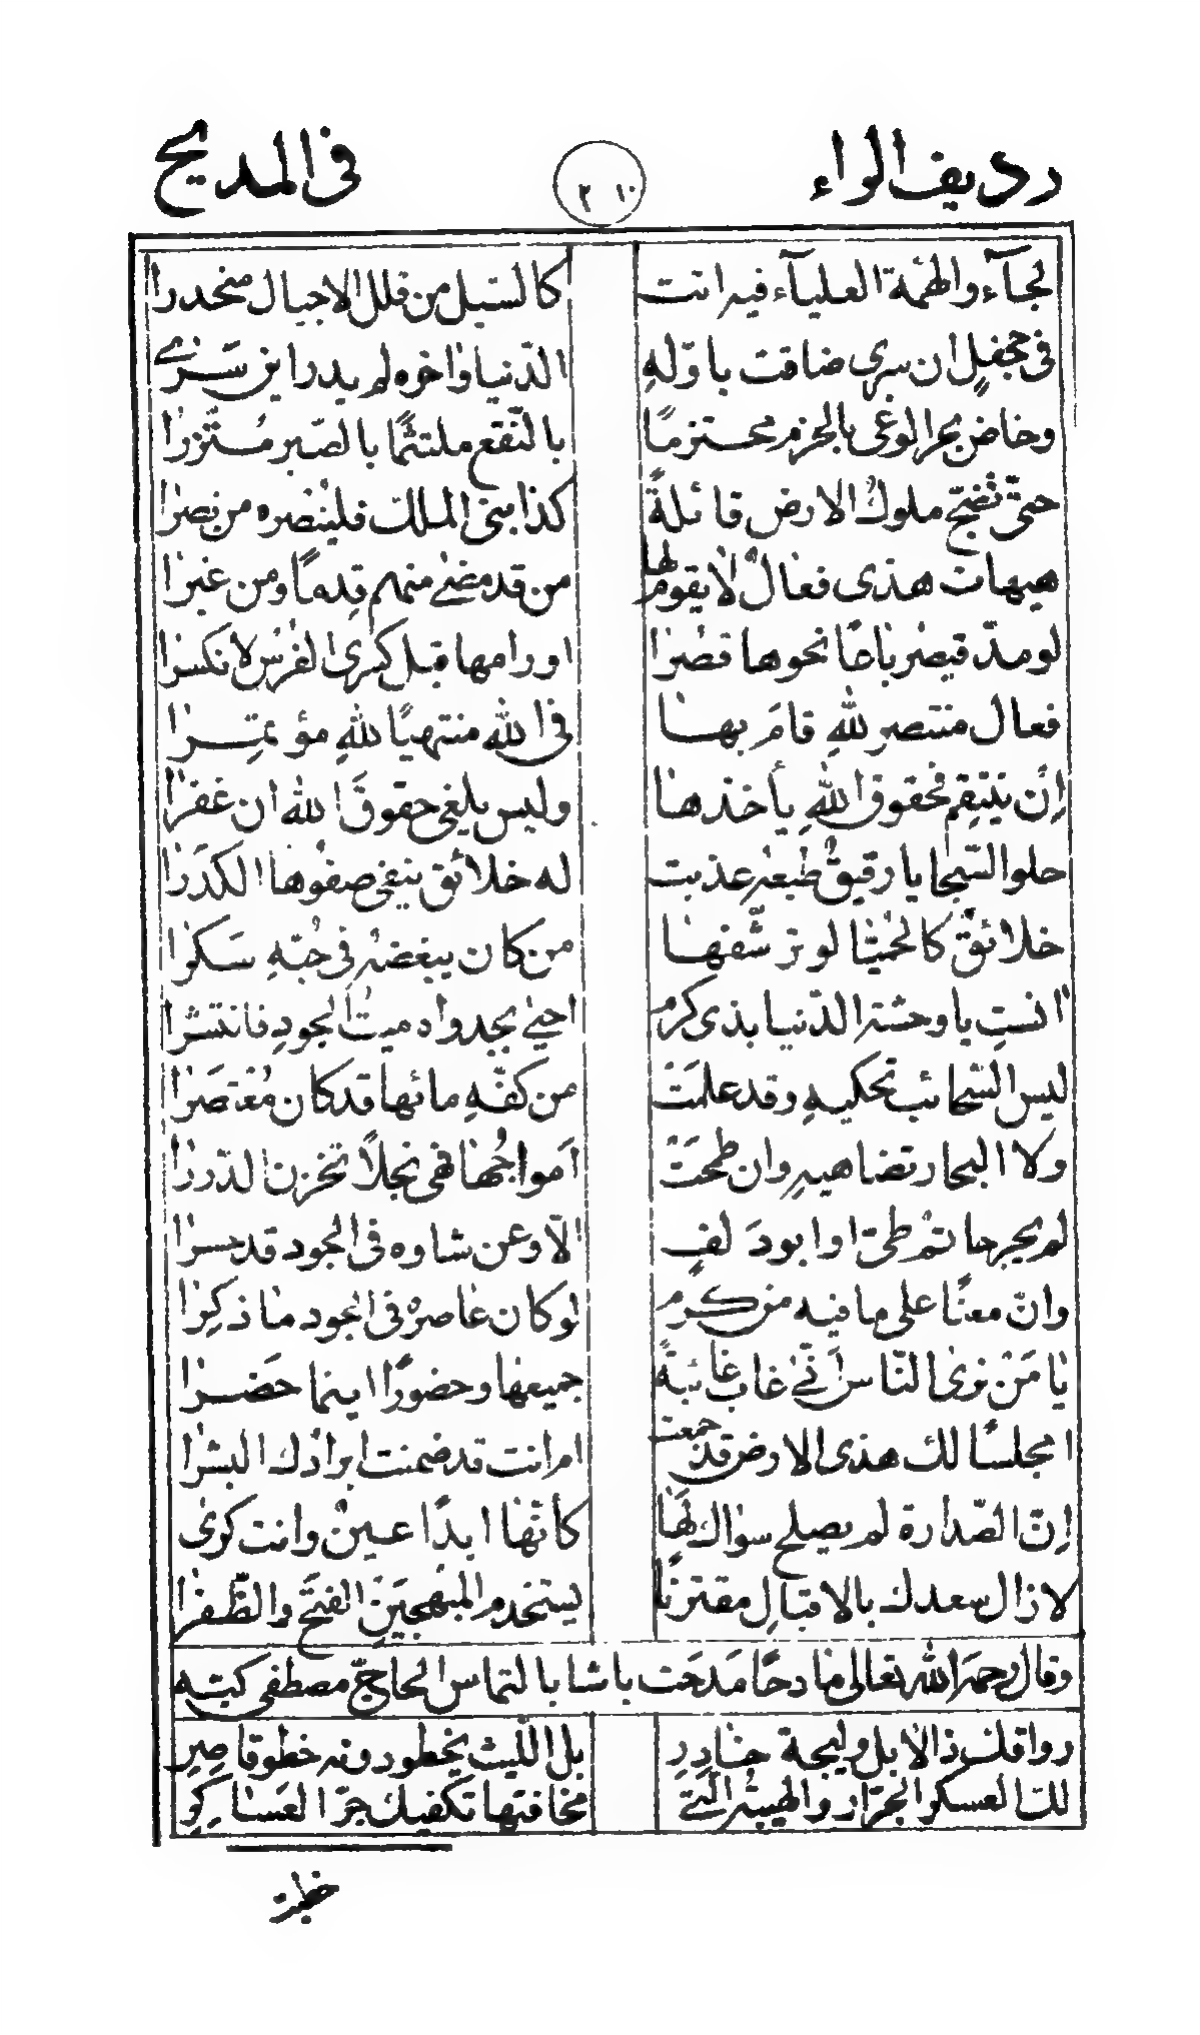 رديف الراء ٢١٠ في المديح
لجآء والهمّة العليآء فيه انت كالسّيل من قلل الاجبال منحدرا
في جحفلٍ ان سرى ضاقت باوّلهِ الدّنيا وٰاخره لم يدر اين سَرٰى
وخاض بحر الوغى بالحزم محتزمًا بالنّقع ملتثمًا بالصّبر مُتّزرا
حتّى تضجّ ملوك الارض قائلةً كذا بنى الملك فلينصره من نصرا
هيهات هذى فعالٌ لا يقوم لها من قد مضىٰ منهم قِدمًا ومن غبرا
لو مدّ قيصر باعًا نحوها قصرا او رامها قبل كسرى الفرس لانكسرا
فعال منتصر للّٰهِ قامَ بها في اللّٰه منتهيًا للّٰهِ مؤتمِرا
إن ينتقم فحقوق اللّٰهِ يأخذها وليس يلغى حقوقَ اللّٰه ان غفرا
حلو السّجايا رقيقٌ طبعه عذبت له خلائق ينفى صفوها الكَدَرا
خلائقٌ كالحميّا لو ترشّفها من كان يبغضه في حُبّهِ سَكرا
اٰنستِ يا وحشة الدّنيا بذى كرم احيىٰ بجدواه ميتَ الجودِ فانتشرا
ليس السّحائب تحكيهِ وقد علمَتْ من كفّهِ مائها قد كان مُعْتصَرا
ولا البحار تضاهيهِ وان طمحَتْ اَمواجُها فهى بخلاً تخزن الدّررا
لم يجر حاتم طيّ او ابودَ لفٍ الّا وعن شاوه في الجود قد حسرا
وانّ معنًا على ما فيه من كرم لو كان عاصرهُ في الجود ما ذُكِرا
يا مَنْ نرى النّاس انّى غاب غائبةً جميعها وحضورًا اينما حَضَرا
امجلسًا لك هذى الارض قد جمعت ام انت قد ضمنت ابرادك البشرا
إنّ الصّدارة لم يصلح سواك لَها كأنّها ابدًا عينٌ وانت كرىٰ
لا زال سعدك بالاقبالِ مقترنًا يستخدم المبهجَينِ الفتح والظّفرا
وقال رحمه اللّٰه تعالى مادحًا مَدحَت باشا بالتماس الحاج مصطفى كبّه
رواقك ذا الا بل وليجة خادِرِ بل اللّيث يخطو دونه خطو قاصِرِ
لك العسكر الجرّار والهيبة الّتي مخافتها تكفيك جرّ العساكِرِ